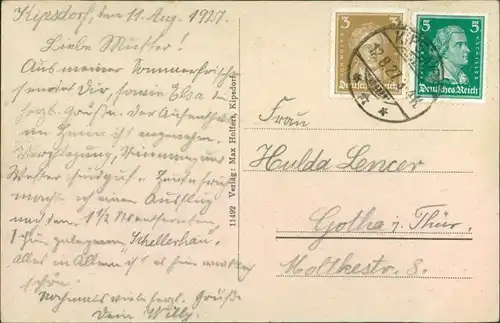 Kipsdorf, den 11. Aug. 1927.
Liebe Mutter!
Aus meiner Sommerfrische
sendet Dir, sowie Elsa die
herzl. Grüße. Der Aufenthalt
im Heim ist angenehm.
Verpflegung, Stimmung und
Wetter sind gut. Heute früh
mache ich einen Ausflug
nach dem 1 1/2 Stunden von
hier gelegenen Schellerhau.
Alles in Allem ist es hier
schön.
Nochmals viele herzl. Grüße
Dein Willy.
11492 Verlag: Max Holfert, Kipsdorf
3 3
Deutsches Reich
5 5
Deutsches Reich
12.8.27
Frau
Hulda Lencer
Gotha i. Thür.
Moltkestr. 8.